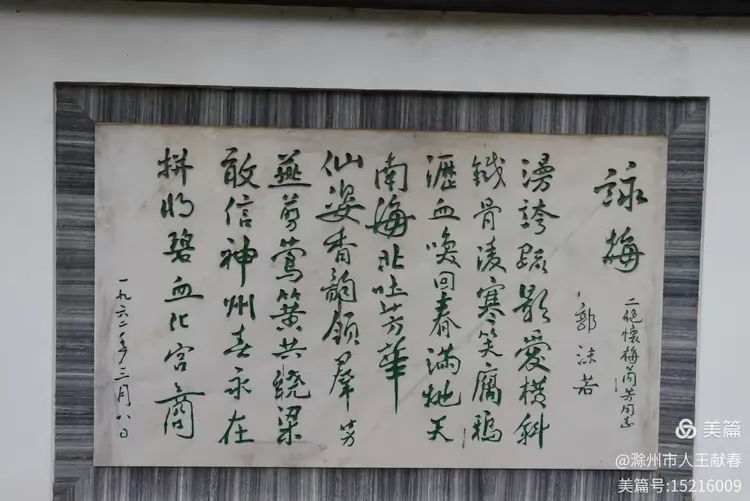 詠梅
二絕懷梅蘭芳同志
郭沫若
漫誇疏影愛橫斜
鐵骨凌寒笑腐鴉
瀝血喚回春滿地天
南海北吐芳華
仙姿香韻領羣芳
燕剪鶯簧共繞梁
敢信神州春永在
拼將碧血化宮商
一九六二年三月八日
美篇
@滁州市人王献春
美篇号:15216009